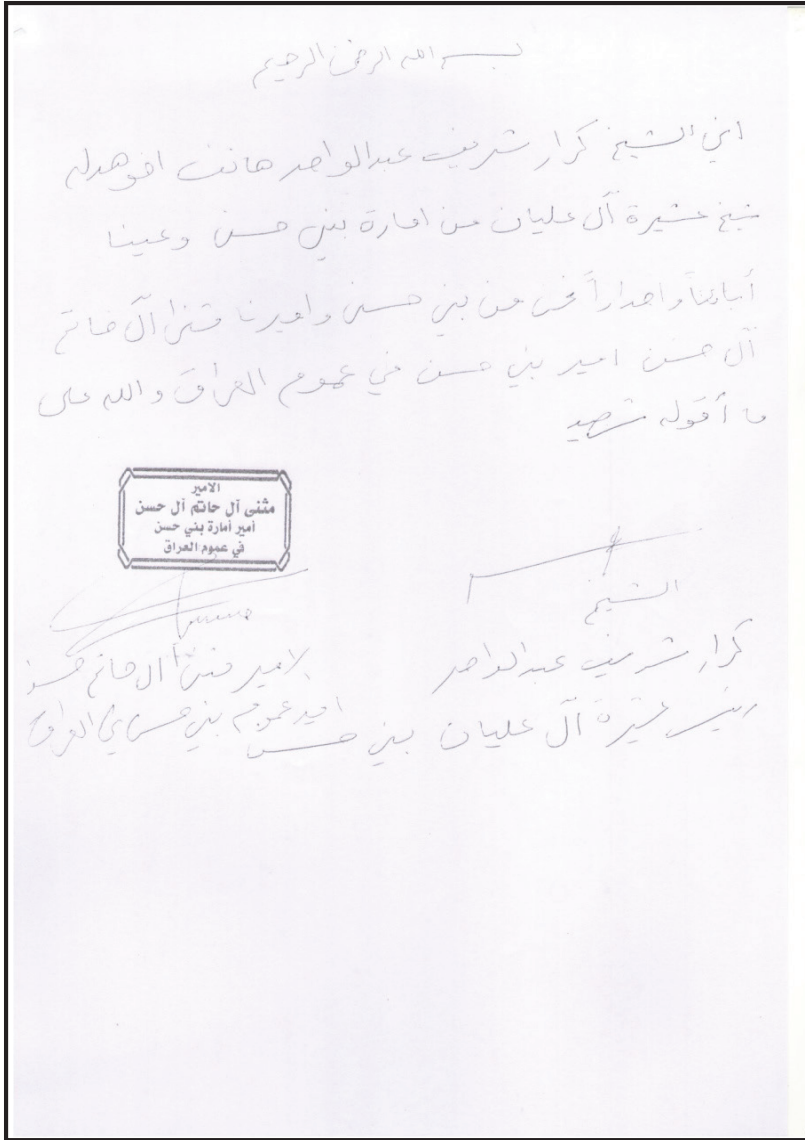 بسم الله الرحمن الرحيم
اني الشيخ كرار شريف عبدالواحد هاتف
شيخ عشيرة آل عليان من امارة بني حسن
أباءاً واجداداً نحن من بني حسن واميرنا مثنى آل حاتم
آل حسن امير بني حسن في عموم العراق والله على
ما أقوله شهيد
الامير
مثنى آل حاتم آل حسن
أمير أمارة بني حسن
في عموم العراق
الشيخ
كرار شريف عبدالواحد
رئيس عشيرة آل عليان بني حسن
الامير مثنى آل حاتم حسن
امير عموم بني حسن في العراق